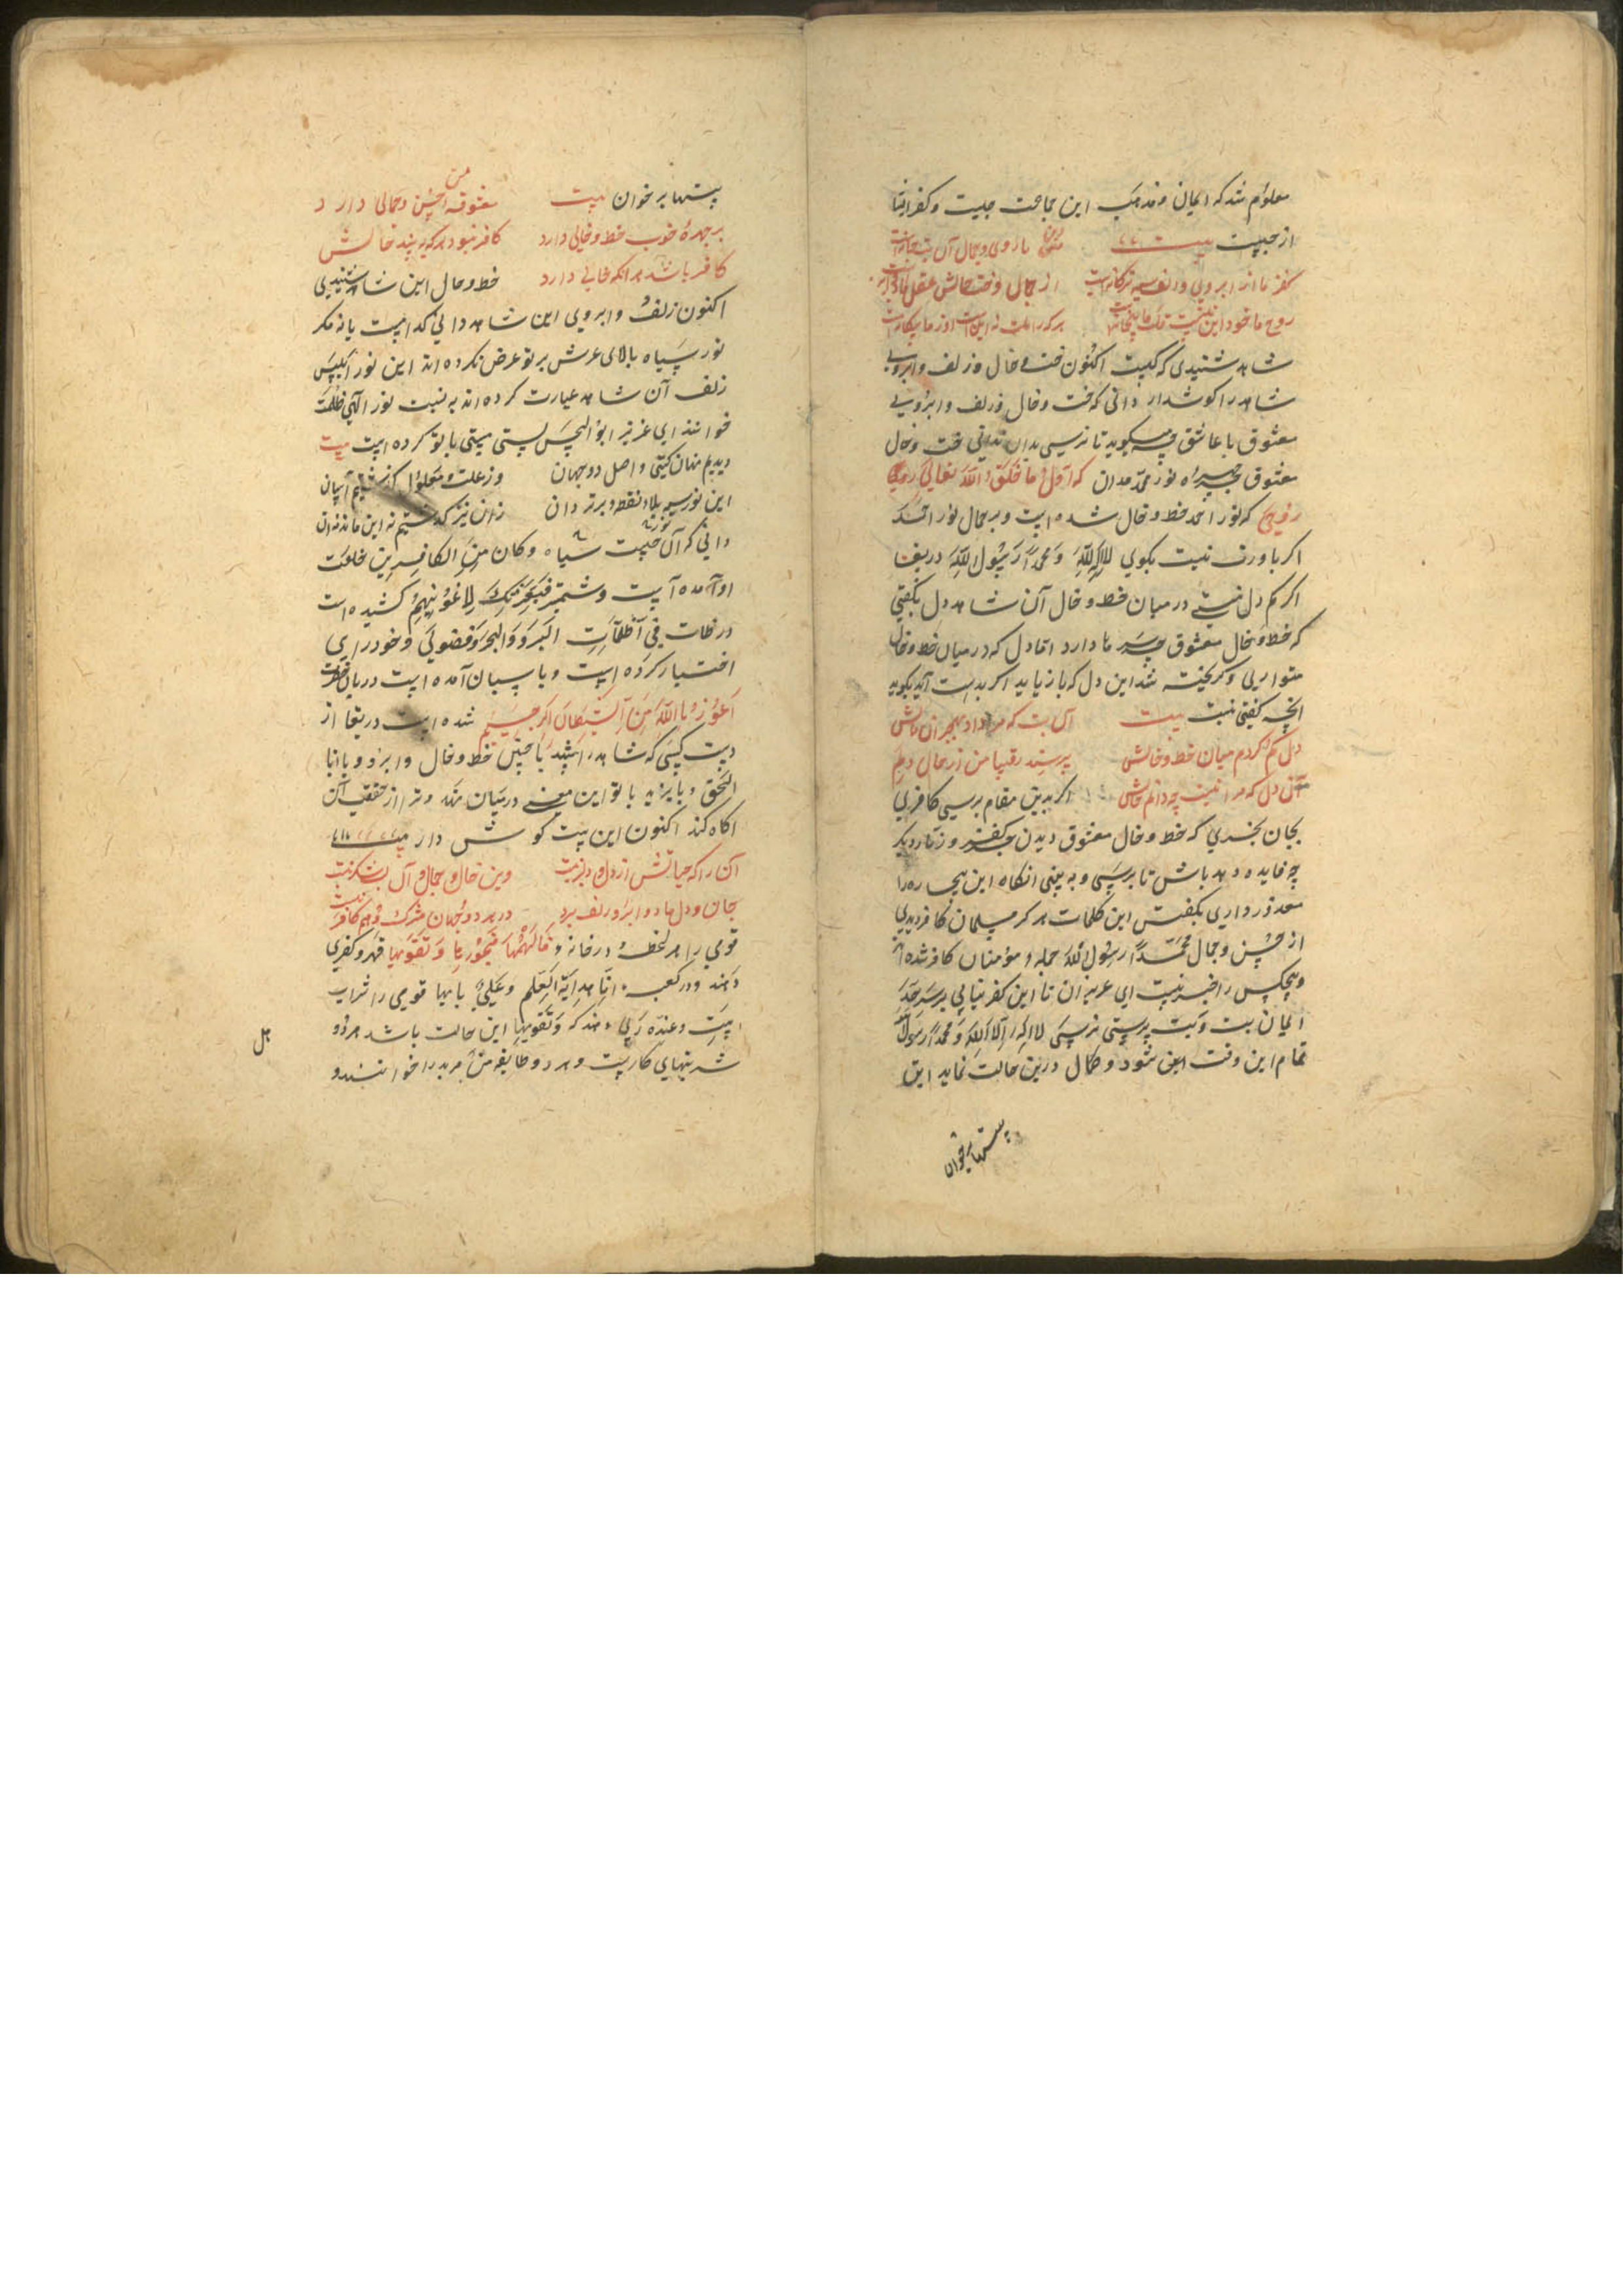 معلوم شد که ایمان و مذهب این جماعت چیست و کفر اینها
از چیست بیت با روی و جمال آن
کفر ما از ابروی و زلف سیه ترکانه است از جمال و خد و خالش عقل ما دیوانه است
روح ما خود این هر که را ملت نه این است او ز ما بیگانه است
شاهد شنیدی که کیست اکنون خد و خال و زلف و ابروی
شاهد را گوش دار دانی که خد و خال و زلف و ابروی
معشوق با عاشق چه میگوید تا نرسی بدان ندانی خد و خال
معشوق چهره نور محمد مدان که اول ما خلق الله تعالی روحی
روحی که نور احمد خط و خال شده است و بر جمال نور احد
اکر باورت نیست بکوی لا اله الا الله و محمدا رسول الله دریغا
اکر کم دل نیستی در میان خط و خال آن شاهد دل بکفتی
که خط و خال معشوق چه سرها دارد اما دل که در میان خط و خال
متواری و کریخته شد این دل که باز یابد اکر بدست آید بکوید
انچه کفتی نیست بیت آن بت که مرا داد بهجران مالش
دل کم کردم میان خط و خالش پرسند رقیبان من ز حال دلم
آن دل که مرا نیست چه دانم حالش اکر بدین مقام برسی کافری
بجان بخری که خط و خال معشوق دیدن جز کفر و زنار دیکر
چه فایده دهد باش تا برسی و به بینی انکاه این بیچاره را
معذور داری بکفتن این کلمات هرکز مسلمان کافر دیدی
از حسن و جمال محمدا رسول الله جمله مؤمنان کافر شده اند
و هیچکس را خبر نیست ای عزیزان تا این کفر نیابی بر سر حد
ایمان بت و بت پرستی نرسی لا اله الا الله و محمدا رسول الله
تمام این وقت نقش شود و کمال درین حالت نماید این
بیتها برخوان
بیتها برخوان بیت معشوقه من حسن و جمالی دارد
بر چهرهٔ خوب خط و خالی دارد کافر نبود هر که به بیند خالش
کافر باشد هر انکه خالی دارد خط و خال این شاهد شنیدی
اکنون زلف و ابروی این شاهد دانی کدامست یا نه مکر
نور سیاه بالای عرش بر تو عرض نکرده اند این نور ابلیس
زلف آن شاهد عبارت کرده اند به نسبت نور الهی ظلمت
خوانند ای عزیز ابو الحسن بستی بیتی با تو کرده است بیت
دیدیم نهان کیتی و اصل دو جهان وز علت و معلول کذشتیم آسان
این نور سیه بلا نقط و برتر دان زان نیز کذشتیم نه این ماند نه آن
دانی که آن نور سیاه چیست و کان من الکافرین خلعت
او آمده است و شمشیر فبعزتک لاغوینهم کشیده است
در ظلمات فی ظلمات البر و البحر و فضولی و خود رایی
اختیار کرده است و پاسبان آمده است دربان
اعوذ باالله من الشیطان الرجیم شده است دریغا از
دست کسی که شاهد را بیند با چنین خط و خال و ابرو و با انا
الحق و بایزید با تو این معنی در میان نهد و ترا از حقیقت آن
اکاه کند اکنون این بیت کوش دار بیت
آن را که حیاتش از دل و دلبر نیست وین خال و جمال و آن بت شکر نیست
جان و دل ما دو ابرو و زلف برد در هر دو جهان مشرک و هم کافر نیست
قومی را هر لحظه در خانه و فالهمها فجورها و تقویها قهر و کفری
دهند و در کعبه انا مدینة العلم و علی بابها قومی را شراب
ابیت عند ربی دهند که و تقویها این حالت باشد هر دو
شربتهای کار پست و هر دو طایفه هل من مزید را خوانند و
هل